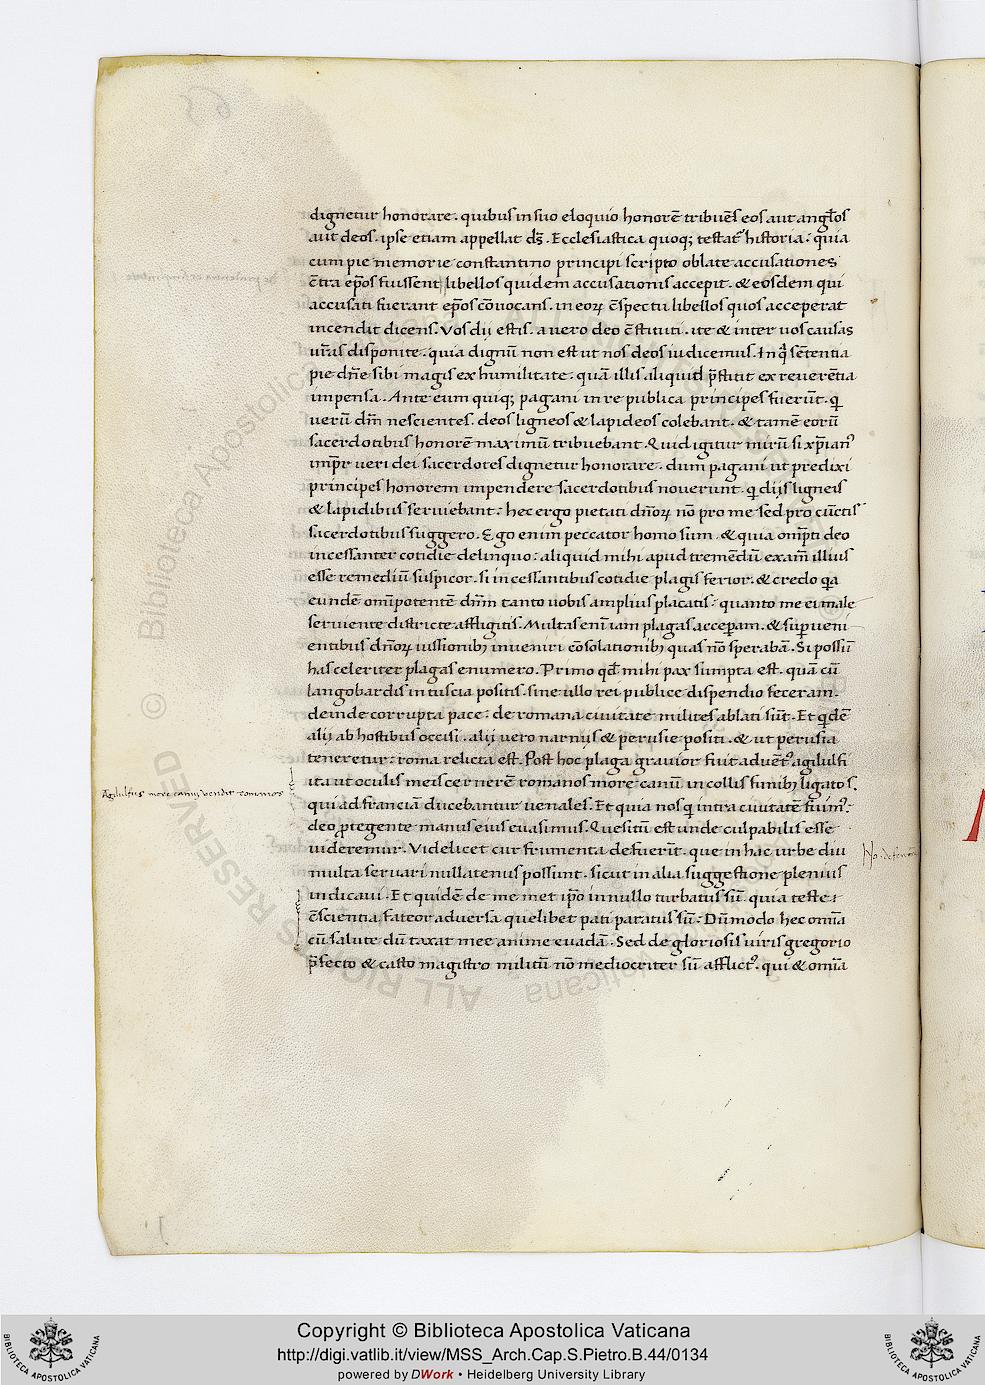 dignetur honorare. quibus in suo eloquio honorē tribuēs eos aut angl̄os
aut deos. ipse etiam appellat ds̄. Ecclesiastica quoq; testat᷒ historia: quia
cum pie memorie constantino principi scripto oblate accusationes
c̄tra ep̄os fuissent libellos quidem accusationis accepit. & eosdem qui
accusati fuerant ep̄os cōuocans. in eoꝝ c̄spectu libellos quos acceperat
incendit dicens. Vos dij estis. a uero deo c̄stituti. ite & inter uos causas
ur̄as disponite. quia dignū non est ut nos deos iudicemus. In q̄ sētentia
pie dn̄e sibi magis ex humilitate. quā illis aliquid p̄stitit ex reuerētia
impensa. Ante eum quiq; pagani in re publica principes fuerūt. qi
uerū dm̄ nescientes. deos ligneos & lapideos colebant. & tamē eorū
sacerdotibus honorē maximū tribuebant. Quid igitur mirū si xp̄ian᷒
imp̄r ueri dei sacerdotes dignetur honorare. dum pagani ut predixi
principes honorem impendere sacerdotibus nouerunt. qi dijs ligneis
& lapidibus seruiebant: hec ergo pietati dn̄oꝝ nō pro me sed pro cūctis
sacerdotibus suggero. Ego enim peccator homo sum. & quia om̄pti deo
incessanter cotidie delinquo: aliquid mihi apud tremēdū exam̄ illius
esse remediū suspicor. si incessantibus cotidie plagis ferior. & credo qa
eundē om̄ipotentē dm̄ tanto uobis amplius placatis: quanto me ei male
seruiente districte affligitis. Multas enī iam plagas acceperam. & supueni
entibus dn̄oꝝ iussionibꝫ inueniri cōsolationibꝫ quas nō sperabam. Si possū
has celeriter plagas enumero. Primo qd̄ mihi pax sumpta est. quā cū
langobardis in tuscia positis. sine ullo rei publice dispendio feceram.
deinde corrupta pace: de romana ciuitate milites ablati sūt. Et qdē
alij ab hostibus occisi. alij uero narnijs & perusie positi. & ut perusia
teneretur: roma relicta est. Post hoc plaga grauior fuit aduēt᷒ agilulfi
ita ut oculis meis cernerē romanos more canū in collis funibꝫ ligatos.
Agilulfus more canū vendit romanos
qui ad franciā ducebantur uenales. Et quia nos qi intra ciuitatē fuim᷒:
deo ꝓtegente manus eius euasimus. Quesitū est unde culpabilis esse
uideremur. Videlicet cur frumenta defuerīt. que in hac urbe diu
multa seruari nullatenus possunt. sicut in alia suggestione plenius
indicaui. Et quidē de me met ip̄o in nullo turbatus sū. quia teste
c̄scientia fateor aduersa quelibet pati paratus sū: Dūmodo hec om̄ia
cū salute dū taxat mee anime euadā. Sed de gloriosis uiris gregorio
p̄fecto & casto magistro militū nō mediocriter sū afflict᷒. qui & om̄ia
Copyright © Biblioteca Apostolica Vaticana
http://digi.vatlib.it/view/MSS_Arch.Cap.S.Pietro.B.44/0134
powered by DWork • Heidelberg University Library
BIBLIOTECA APOSTOLICA VATICANA
BIBLIOTECA APOSTOLICA VATICANA
© Biblioteca Apostolica Vaticana ALL RIGHTS RESERVED